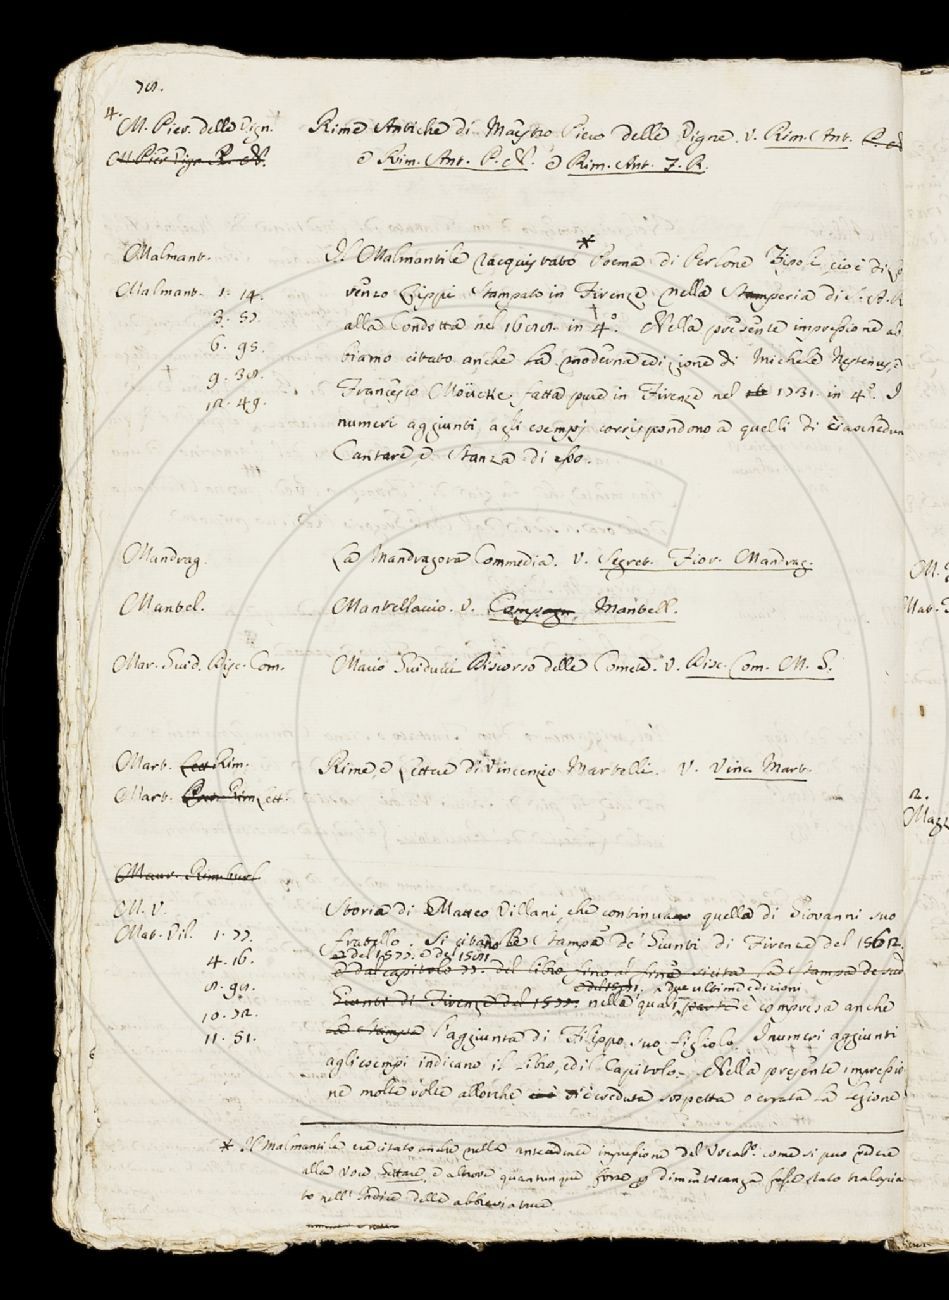 78.
4.
M. Pier. delle Vign. Rime Antiche di Maestro Piero delle Vigne. v. Rim. Ant. P. N.
M. Pier Vign. R. A. e Rim. Ant. P. N. e Rim. Ant. F. R.
Malmant. Il Malmantile racquistato * Poema di Perlone Zipoli, cioè di Lo
Malmant. 1. 14. renzo Lippi Stampato in Firenze nella Stamperia di S. A. R.
3. 57. alla Condotta nel 1688. in 4º. Nella presente impressione ab
6. 95. biamo citato anche la moderna edizione di Michele Nestenus, e
9. 38. Francesco Moücke, fatta pure in Firenze nel 1731. in 4º. I
12. 49. numeri aggiunti agli esempj corrispondono a quelli di ciaschedun
Cantare, e Stanza di esso.
Mandrag. La Mandragora Commedia. v. Segret. Fior. Mandrag.
Mantel. Mantellaccio. v. Compagn. Mantell.
Mar. Guid. Disc. Com. Mario Guiducci Discorso delle Comete. v. Disc. Com. M. G.
Mart. Lett. Rim. Rime, e Lettere di Vincenzio Martelli. v. Vinc. Mart.
Mart. Lett.
Maur. Rim. burl.
M. V. Storia di Matteo Villani, che continua quella di Giovanni suo
Mat. Vil. 1. 77. fratello. Si cita la Stampa de' Giunti di Firenze del 1562.
e del 1577. e del 1581.
4. 16. e dal capitolo 77. del libro fino al fine si cita la Stampa de' sud
e del 1581. due ultime edizioni
8. 98. Giunti di Firenze del 1577. nella quali parte è compresa anche
10. 72. la stampa l'aggiunta di Filippo suo figliolo. I numeri aggiunti
11. 51. agli esempi indicano il Libro, ed il Capitolo. Nella presente impressio
ne molte volte allorchè ci è creduta sospetta o errata la lezione
* Il Malmantile era citato anche nella antecedente impressione del Vocabº. come si può vedere
alla voce Gettare, e altrove quantunque forse p dimenticanza fosse stato tralascia
to nell'Indice delle abbreviature
M.
Mat.
2.
Magz